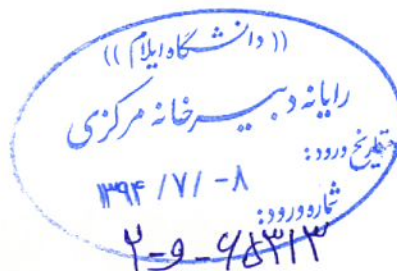 (( دانشگاه ایلام ))
رایانه دبیرخانه مرکزی
تاریخ ورود:
۱۳۹۴ /۷/ -۸
شماره ورود:
۲-۹-۶۵۳۱۳